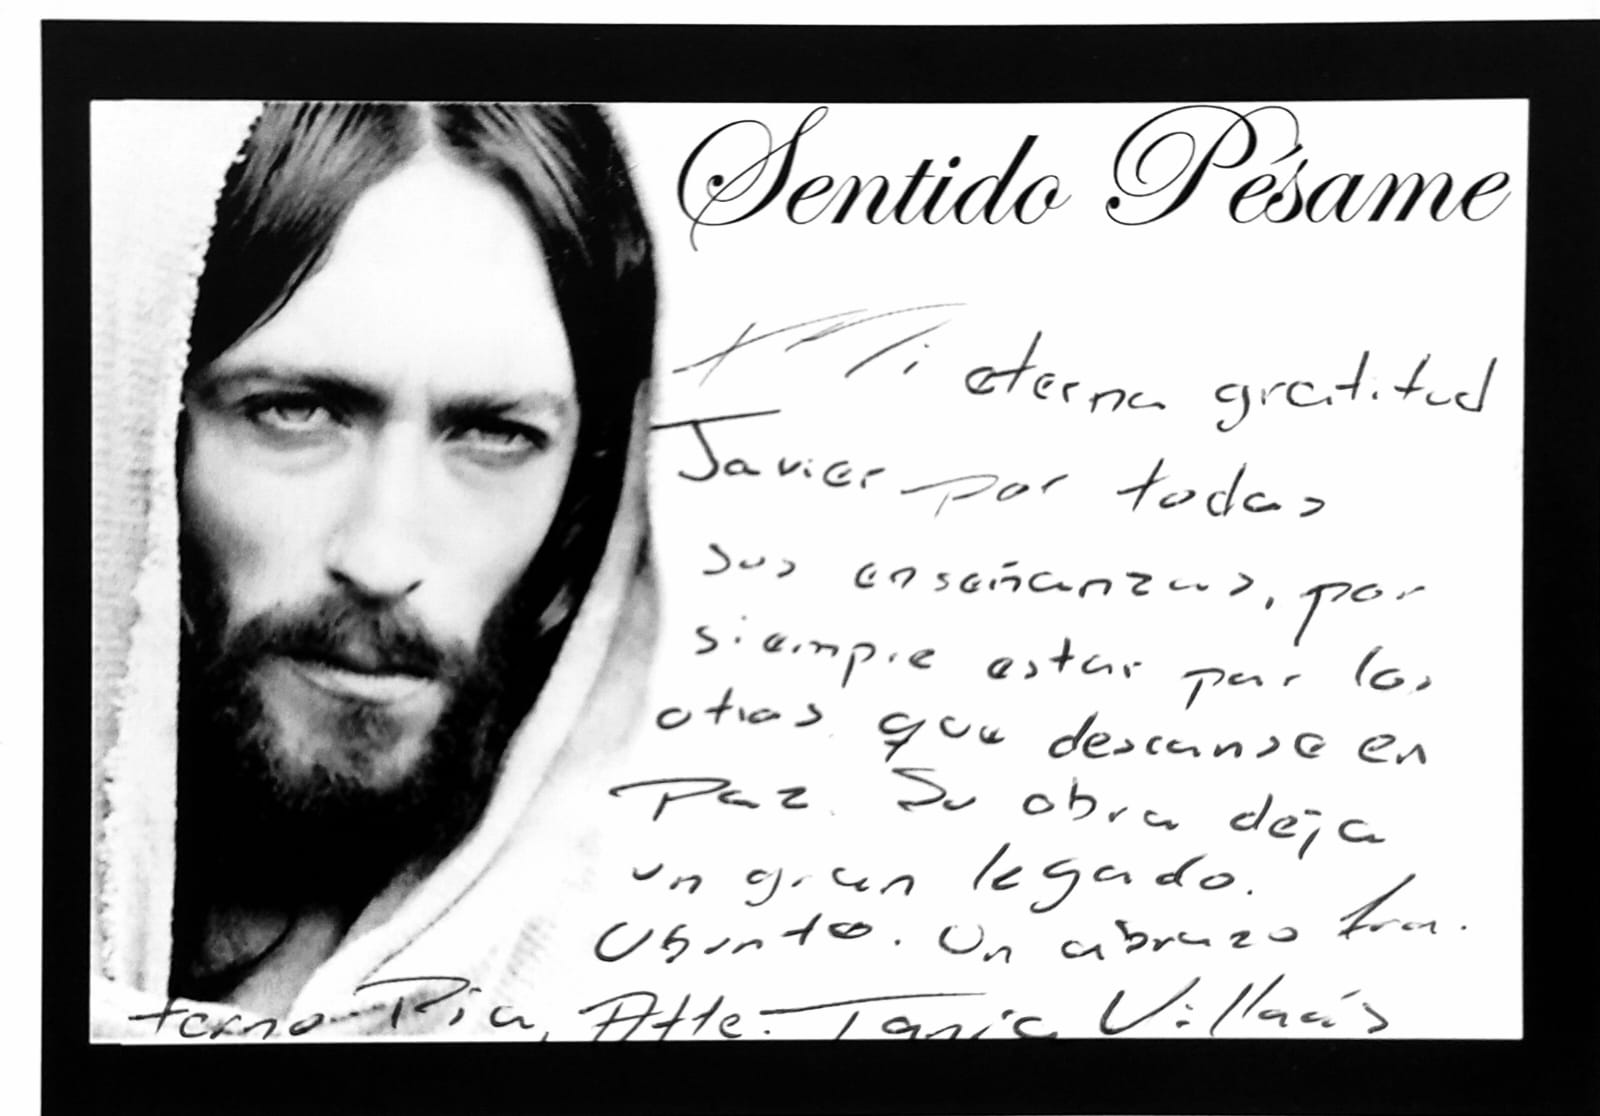 Sentido Pésame
Mi eterna gratitud
Javier por todas
sus enseñanzas, por
siempre estar por los
otros que descanse en
Paz. Su obra deja
un gran legado.
Un abrazo fra.
terno Pía, Atte: Tania Villacís